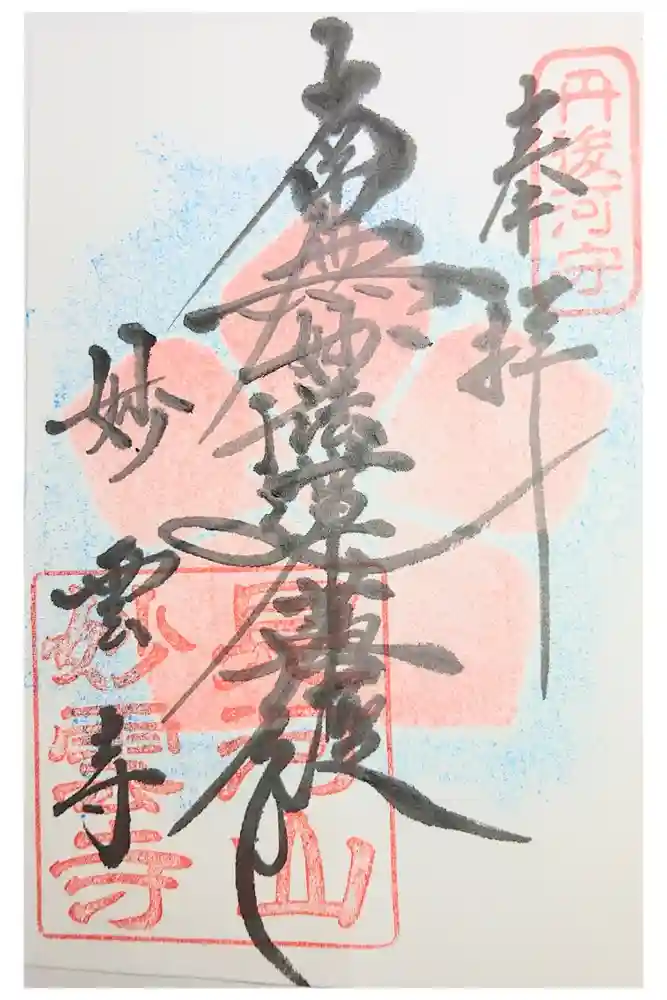 丹後河守
奉拝
南無妙法蓮華経
妙雲寺
山
妙雲寺